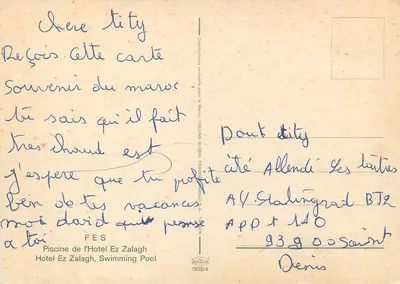 chere tity
Reçois cette carte
souvenir du maroc.
tu sais qu'il fait
tres chaud est
j'espere que tu profite
ben de tes vacances
moi david qui pense
a toi
FES
Piscine de l'Hotel Ez Zalagh
Hotel Ez Zalagh, Swimming Pool
1909/4
pour tity
cité Allendé Les
AV. Stalingrad BT2
APPt 110
93200 Saint
Denis